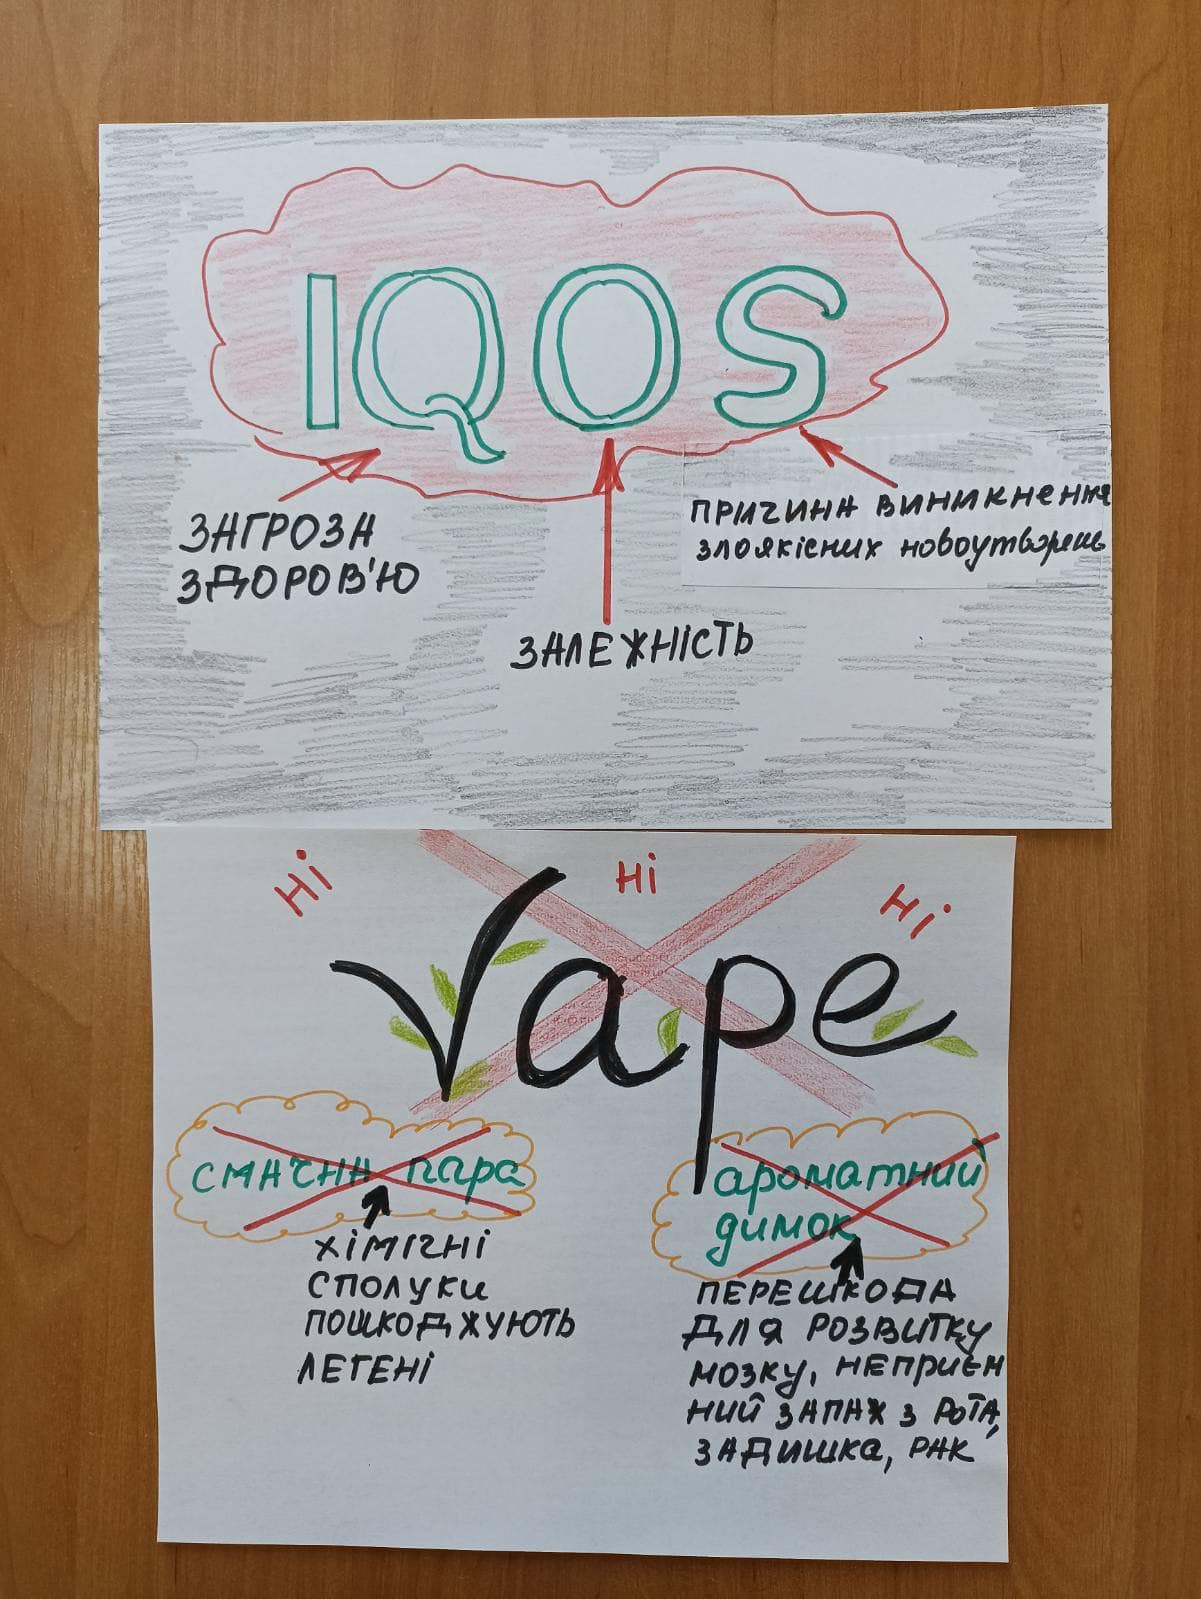 IQOS
ЗАГРОЗА
ЗДОРОВ'Ю
ЗАЛЕЖНІСТЬ
ПРИЧИНА ВИНИКНЕННЯ
злоякісних новоутворень
Ні Ні Ні
Vape
смачна пара
ХІМІЧНІ
СПОЛУКИ
ПОШКОДЖУЮТЬ
ЛЕГЕНІ
ароматний
димок
ПЕРЕШКОДА
ДЛЯ РОЗВИТКУ
МОЗКУ, НЕПРИЄМ
НИЙ ЗАПАХ З РОТА,
ЗАДИШКА, РАК